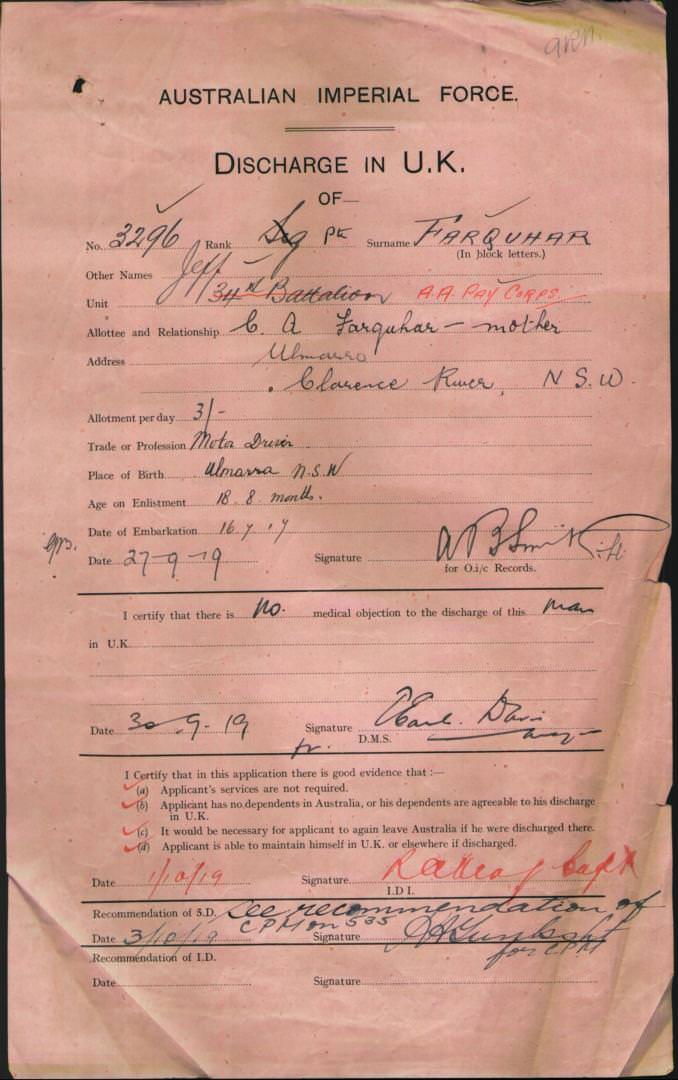 AUSTRALIAN IMPERIAL FORCE.
DISCHARGE IN U.K.
OF—
No. 3296 Rank Pte Surname FARQUHAR
(In block letters.)
Other Names Jeff
Unit 34th Battalion A.A. PAY CORPS.
Allottee and Relationship C. A Farquhar — mother
Address Ulmarra
Clarence River, N S.W.
Allotment per day 3/-
Trade or Profession Motor Driver
Place of Birth Ulmarra N.S.W
Age on Enlistment 18. 8 months.
Date of Embarkation 16 7 17
Date 27-9-19 Signature A B Smith
for O.i/c Records.
I certify that there is No. medical objection to the discharge of this man
in U.K.
Date 30-9-19 Signature
D.M.S.
I Certify that in this application there is good evidence that :—
(a) Applicant's services are not required.
(b) Applicant has no dependents in Australia, or his dependents are agreeable to his discharge
in U.K.
(c) It would be necessary for applicant to again leave Australia if he were discharged there.
(d) Applicant is able to maintain himself in U.K. or elsewhere if discharged.
Date 1/10/19 Signature Capt
I.D I.
Recommendation of S.D. See recommendation of
CPM on 535
Date 3/10/19 Signature
for CPM
Recommendation of I.D.
Date Signature